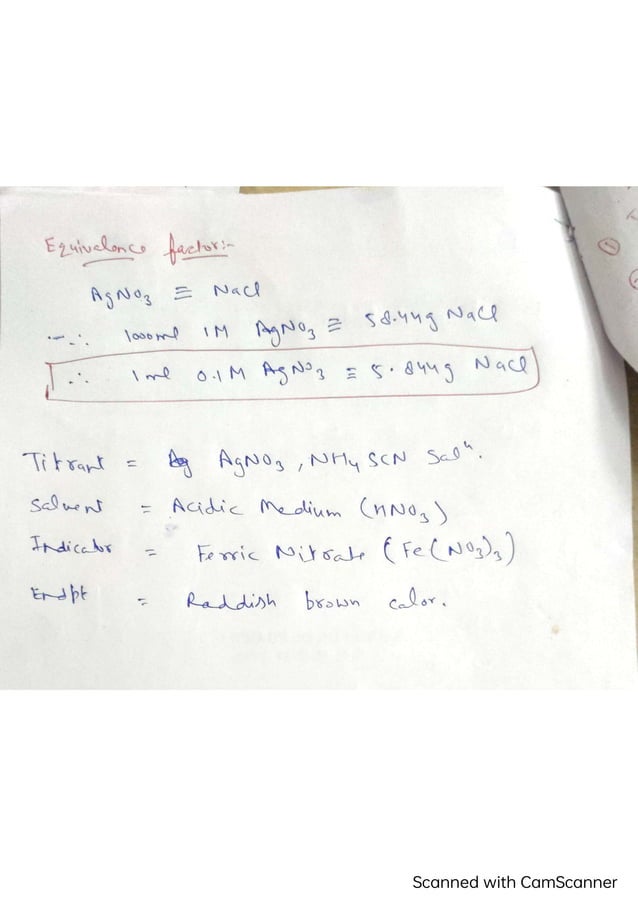 Equivalence factor:-
AgNO3 ≡ NaCl
-∴ 1000ml 1M AgNO3 ≡ 58.44g NaCl
∴ 1ml 0.1M AgNO3 ≡ 5.844g NaCl
Titrant = AgNO3, NH4SCN Solⁿ.
Solvent = Acidic Medium (HNO3)
Indicator = Ferric Nitrate (Fe(NO3)3)
Endpt = Raddish brown color.
Scanned with CamScanner